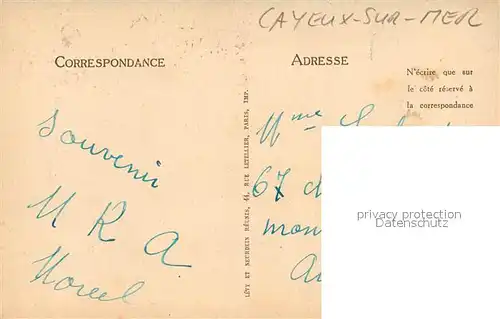 CAYEUX-SUR-MER
CORRESPONDANCE
ADRESSE
N'écrire que sur
le côté réservé à
la correspondance
Souvenir
M R A
Marcel
LÉVY ET NEURDEIN RÉUNIS, 44, RUE LETELLIER, PARIS, IMP.
Mme
67
privacy protection
Datenschutz